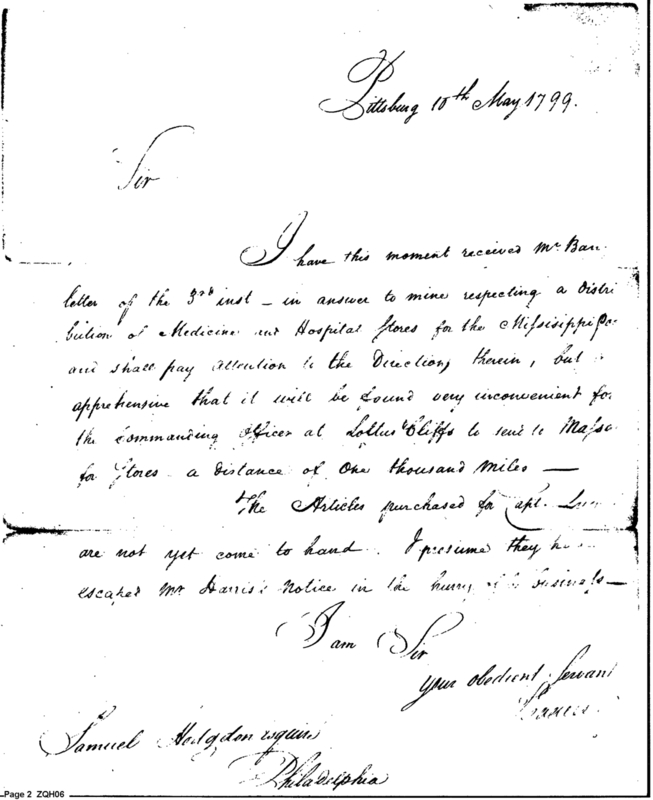 Pittsburg 10th May 1799.
Sir
I have this moment received Mr Bar
letter of the 3rd inst – in answer to mine respecting a Distri
bution of Medicine and Hospital Stores for the Missisippi
and shall pay attention to the Directions therein, but
apprehensive that it will be found very inconvenient for
the Commanding Officer at Loftus Cliffs to send to Massa
for Stores a distance of One thousand Miles —
The Articles purchased for Capt.
are not yet come to hand. I presume they
escaped Mr Harris's Notice in the hurry of business —
I am Sir
your obedient Servant
Samuel Hodgdon esquire
Philadelphia
Page 2 ZQH06